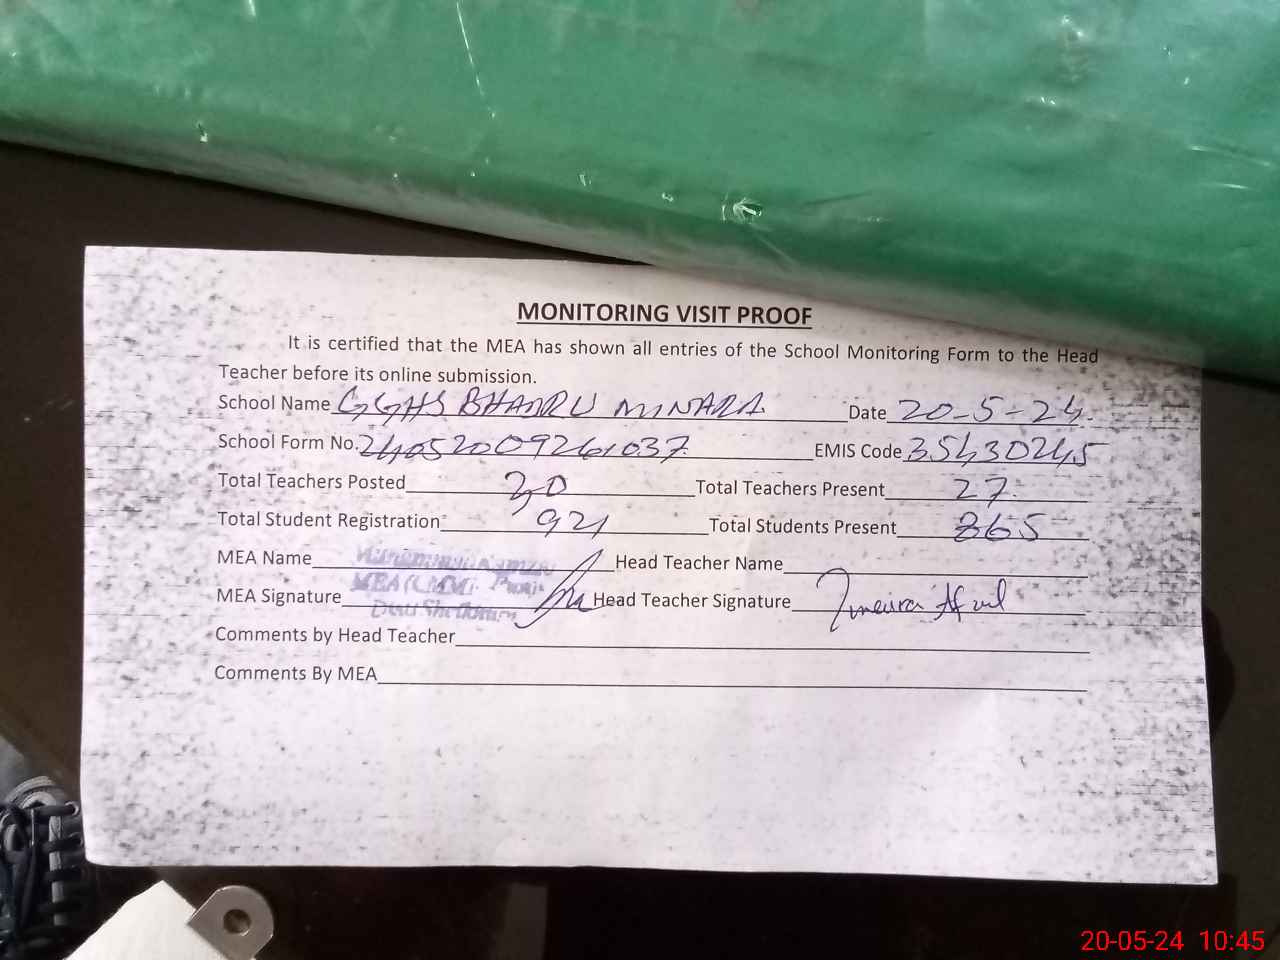 MONITORING VISIT PROOF
It is certified that the MEA has shown all entries of the School Monitoring Form to the Head
Teacher before its online submission.
School Name GGHS BHADRU MINARA Date 20-5-24
School Form No. 24052009261037 EMIS Code 35430245
Total Teachers Posted 30 Total Teachers Present 27
Total Student Registration 921 Total Students Present 865
MEA Name Muhammad Head Teacher Name
MEA Signature MEA Head Teacher Signature
Comments by Head Teacher
Comments By MEA
20-05-24 10:45